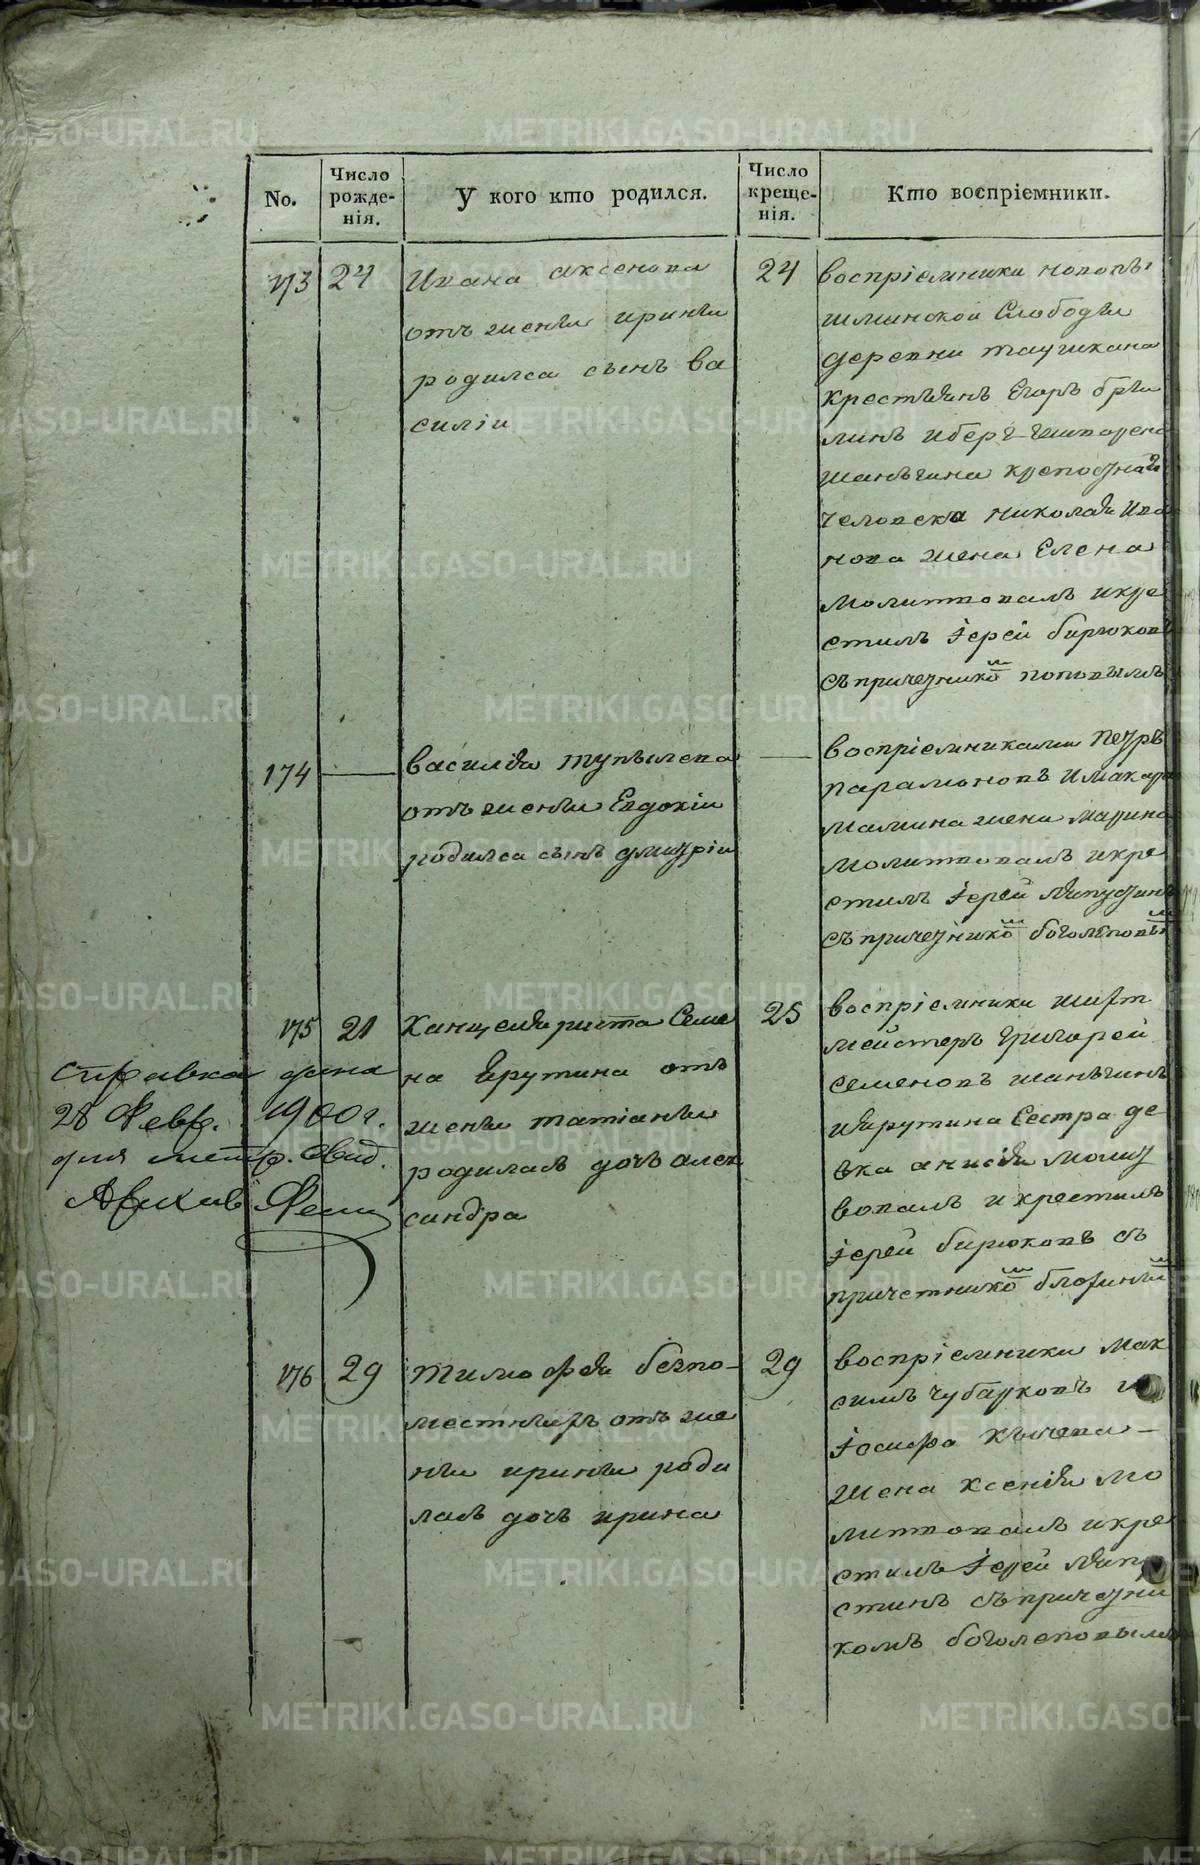 No.
Число рожде-нія.
У кого кто родился.
Число креще-нія.
Кто воспріемники.
173
24
Ивана аксенова
отъ жены ирины
родился сынъ ва
силіи
24
воспріемники новопы
шминской Слободы
деревни таушкана
крестьянъ Егоръ бры
линъ и берг
шанѣгина крепостнаго
человека николая Ива
нова жена Елена
молитвовалъ и кре
стилъ Іерей бирюковъ
съ причетнико попопымъ
174
василія
отъ жены Евдокіи
родился сынъ дмитріи
воспріемниками Петръ
парамоновъ и макара
мамина жена марина
молитвовалъ и кре
стилъ Іерей ляпустинъ
съ причетнико боголепопы
175
21
Канцеляриста Семе
на ярутина отъ
жены татіаны
родилась дочь алек
сандра
25
воспріемники шихт
мейстеръ Григорей
семеновъ шанѣгинъ
и ярутина Сестра де
вка анисія молит
вовалъ и крестилъ
Іерей бирюковъ съ
причетнико
Справка дана
28 Февр. 1900 г.
для метр. свид.
Архив
176
29
тимофея безпо-
местныхъ отъ же
ны ирины роди
лась дочь ирина
29
воспріемники Мак
симъ чубарковъ и
Іосифа
жена ксенія мо
литвовалъ и кре
стилъ Іерей ляпу
стинъ съ причетни
комъ боголеповымъ
METRIKI.GASO-URAL.RU